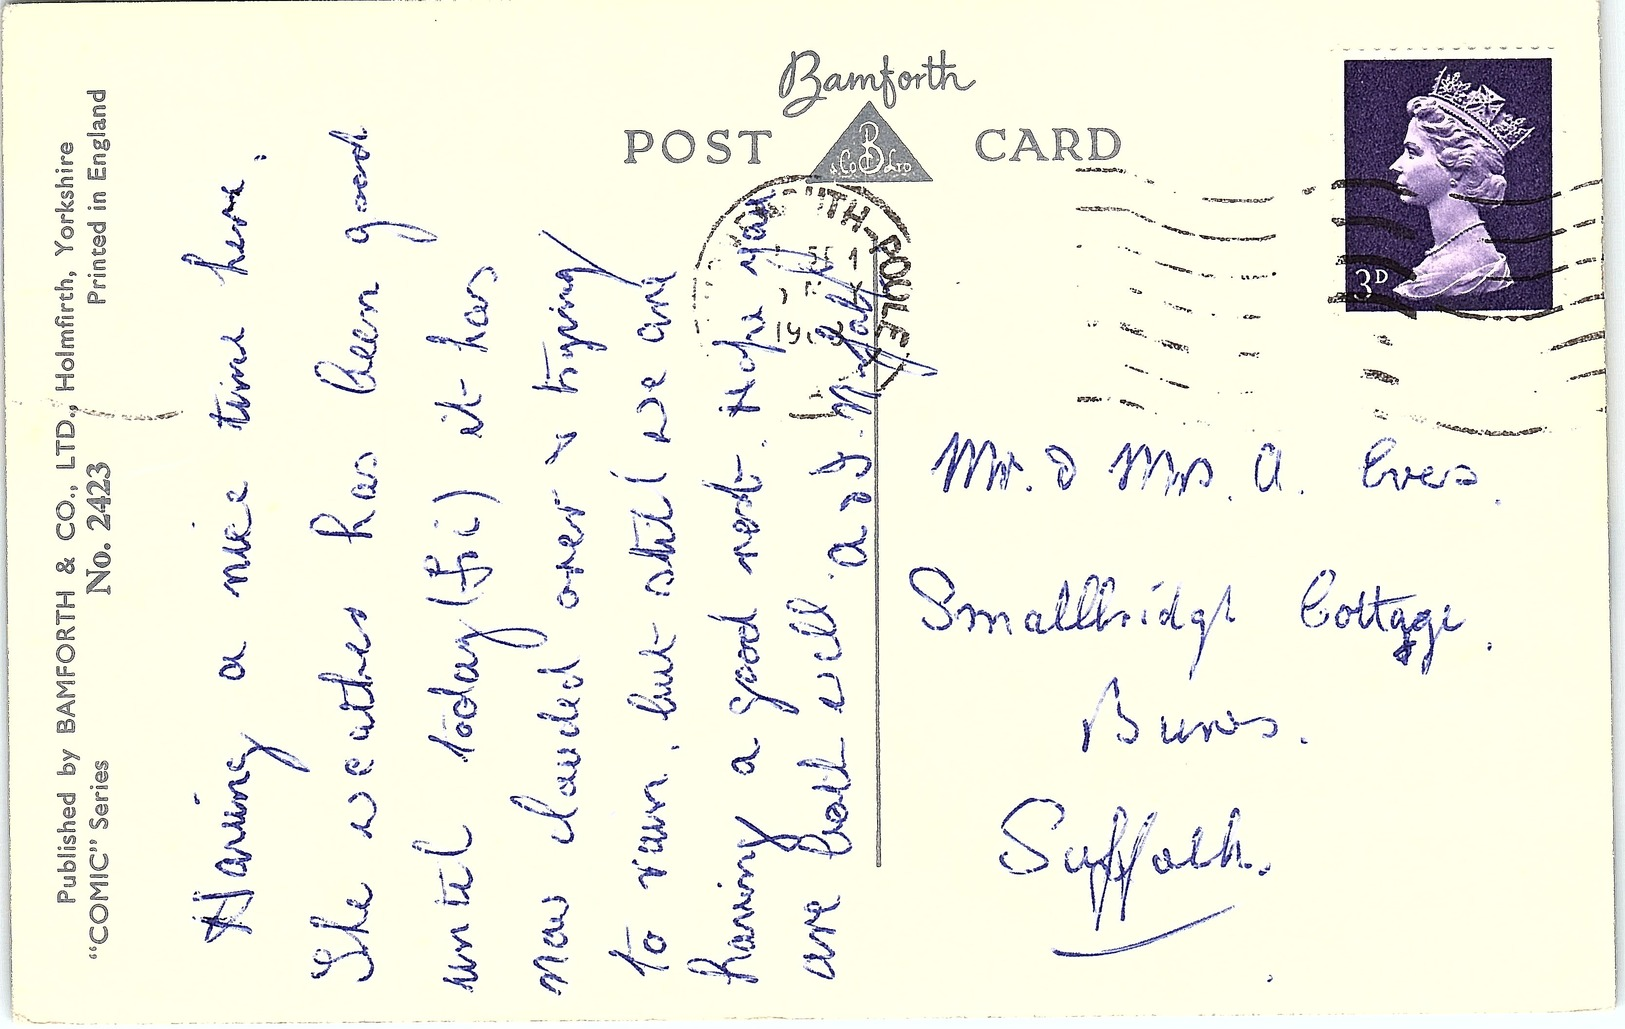 Published by BAMFORTH & CO., LTD., Holmfirth, Yorkshire
"COMIC" Series No. 2423 Printed in England
Having a nice time here.
The weather has been good
until today (Fri) it has
now clouded over & trying
to rain, but still we are
having a good rest. Hope you
are both well.
Bamforth
POST CARD
B
& Co LTD
3D
Mr. & Mrs. A. Eves.
Smallbridge Cottage.
Bures.
Suffolk.